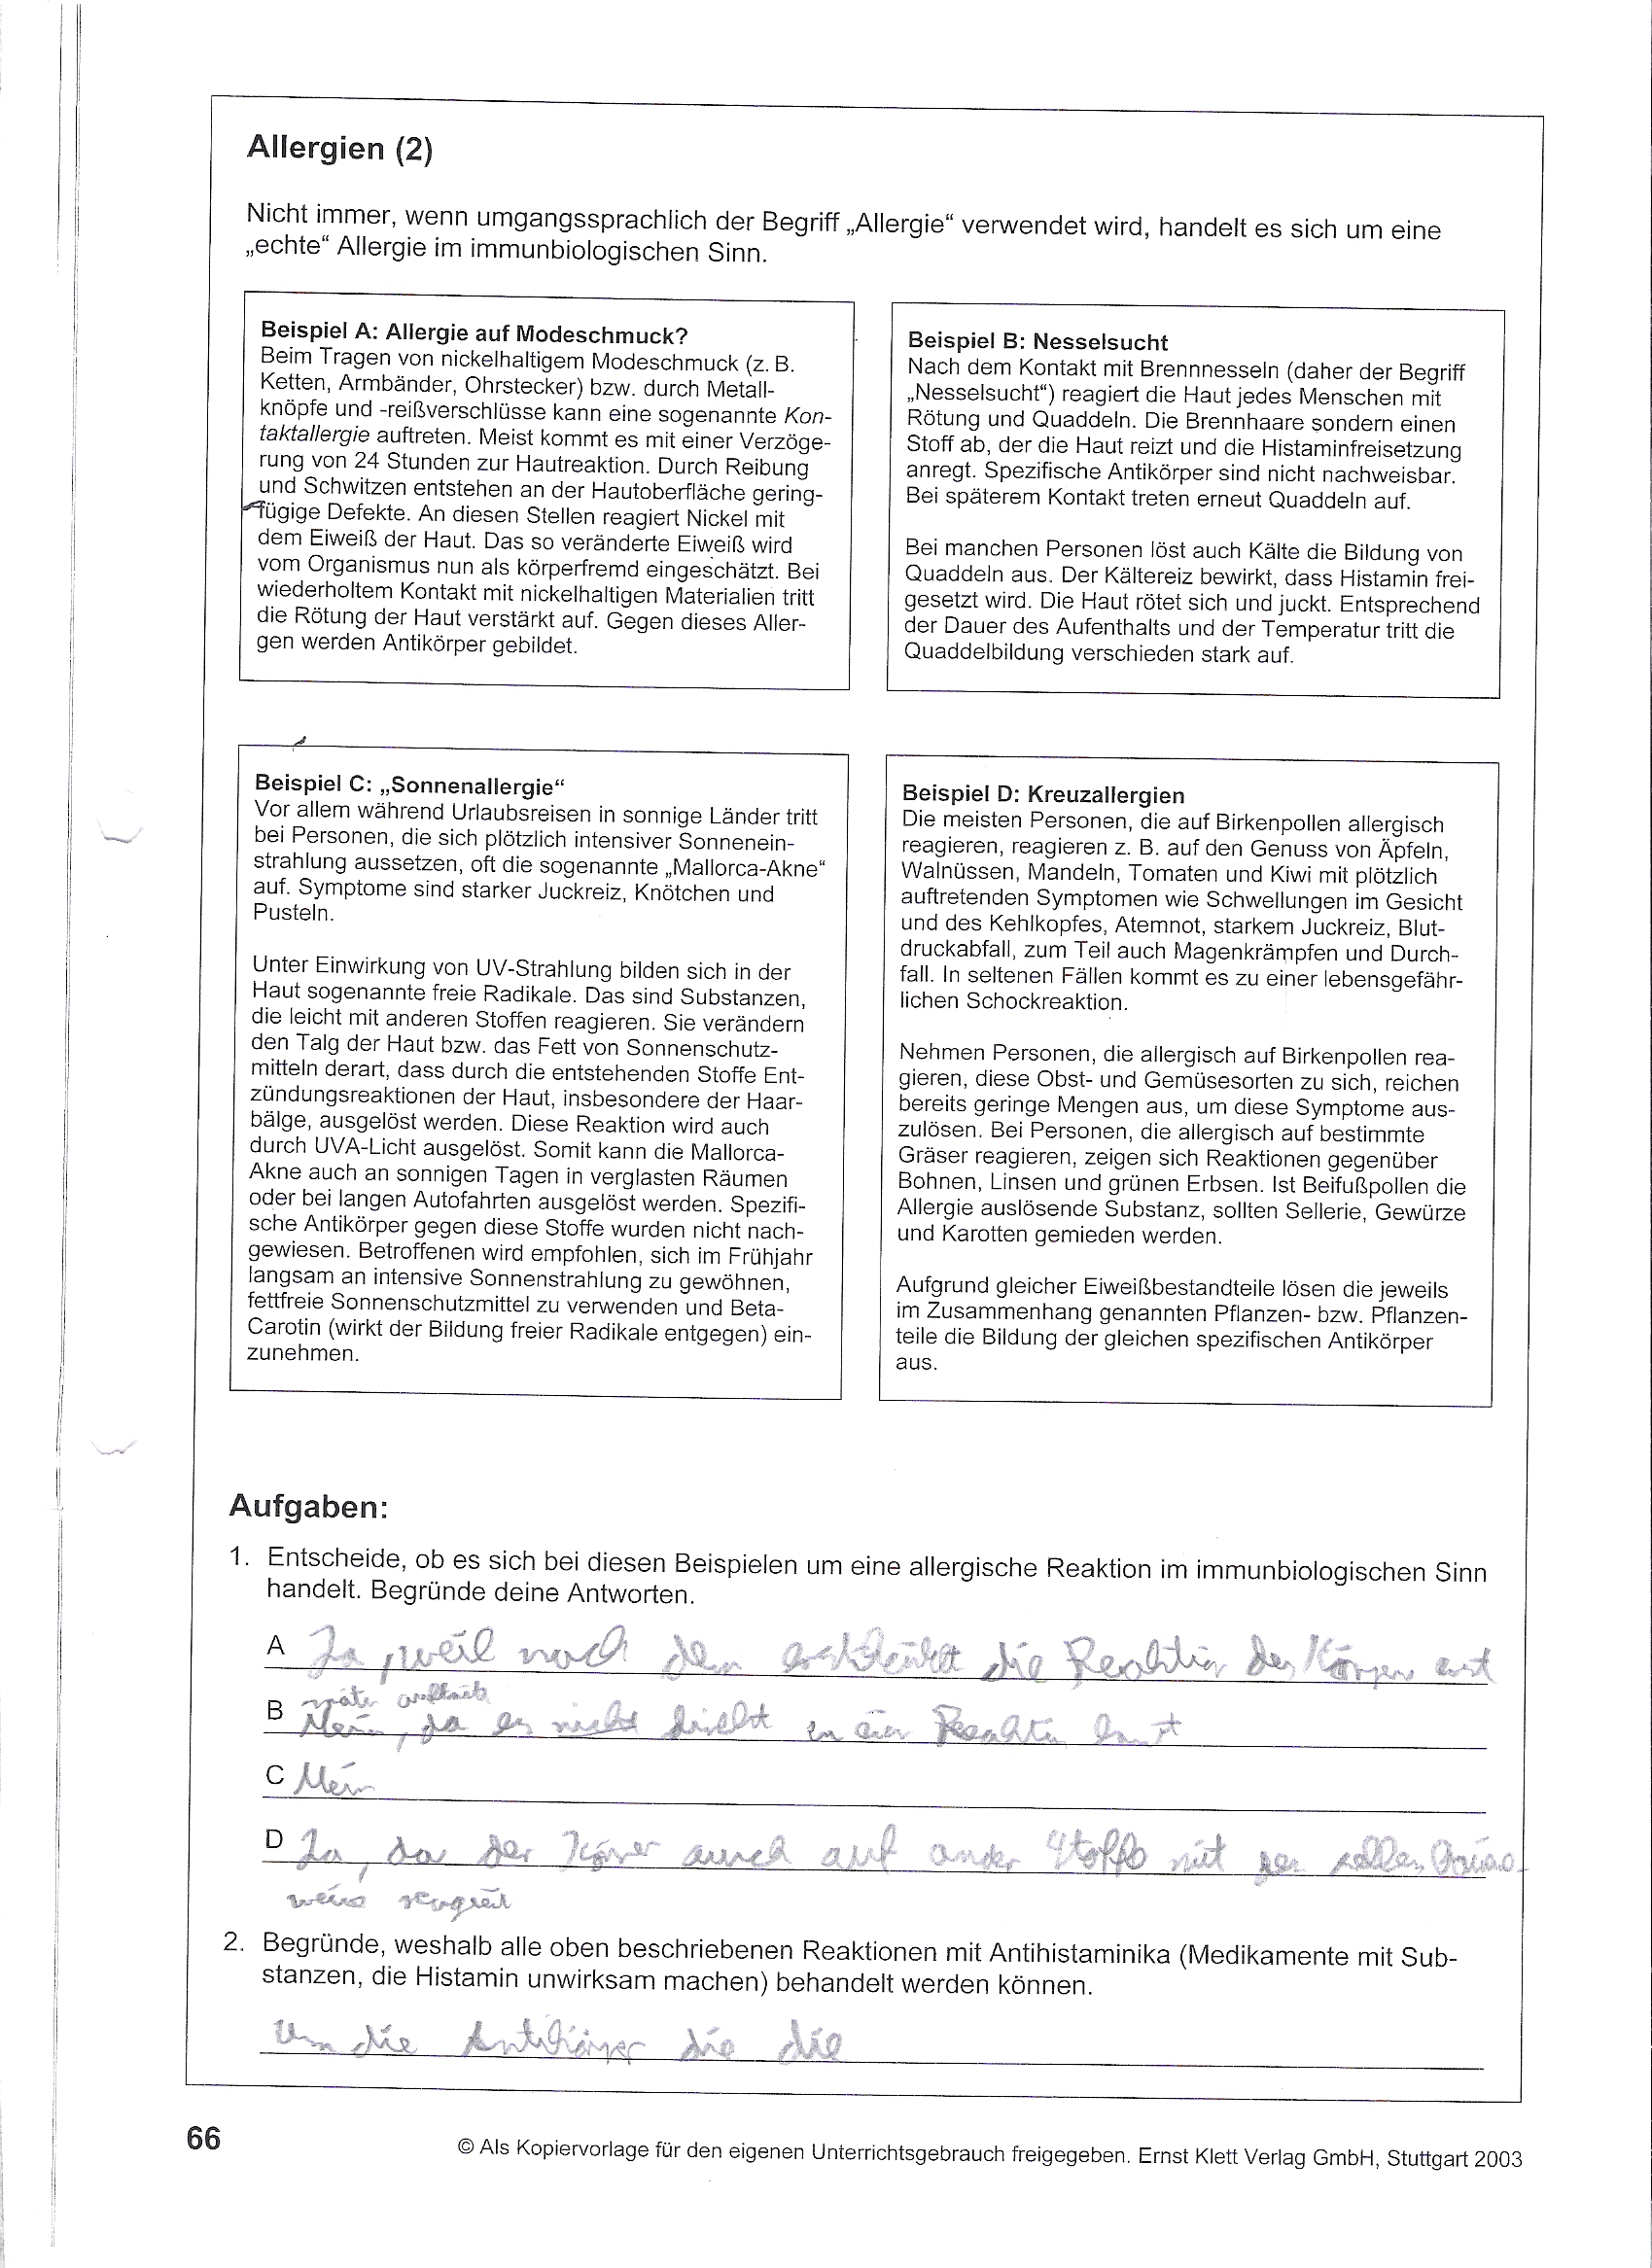 Allergien (2)
Nicht immer, wenn umgangssprachlich der Begriff „Allergie“ verwendet wird, handelt es sich um eine
„echte“ Allergie im immunbiologischen Sinn.
Beispiel A: Allergie auf Modeschmuck?
Beim Tragen von nickelhaltigem Modeschmuck (z. B.
Ketten, Armbänder, Ohrstecker) bzw. durch Metall-
knöpfe und -reißverschlüsse kann eine sogenannte Kon-
taktallergie auftreten. Meist kommt es mit einer Verzöge-
rung von 24 Stunden zur Hautreaktion. Durch Reibung
und Schwitzen entstehen an der Hautoberfläche gering-
fügige Defekte. An diesen Stellen reagiert Nickel mit
dem Eiweiß der Haut. Das so veränderte Eiweiß wird
vom Organismus nun als körperfremd eingeschätzt. Bei
wiederholtem Kontakt mit nickelhaltigen Materialien tritt
die Rötung der Haut verstärkt auf. Gegen dieses Aller-
gen werden Antikörper gebildet.
Beispiel B: Nesselsucht
Nach dem Kontakt mit Brennnesseln (daher der Begriff
„Nesselsucht“) reagiert die Haut jedes Menschen mit
Rötung und Quaddeln. Die Brennhaare sondern einen
Stoff ab, der die Haut reizt und die Histaminfreisetzung
anregt. Spezifische Antikörper sind nicht nachweisbar.
Bei späterem Kontakt treten erneut Quaddeln auf.
Bei manchen Personen löst auch Kälte die Bildung von
Quaddeln aus. Der Kältereiz bewirkt, dass Histamin frei-
gesetzt wird. Die Haut rötet sich und juckt. Entsprechend
der Dauer des Aufenthalts und der Temperatur tritt die
Quaddelbildung verschieden stark auf.
Beispiel C: „Sonnenallergie“
Vor allem während Urlaubsreisen in sonnige Länder tritt
bei Personen, die sich plötzlich intensiver Sonnenein-
strahlung aussetzen, oft die sogenannte „Mallorca-Akne“
auf. Symptome sind starker Juckreiz, Knötchen und
Pusteln.
Unter Einwirkung von UV-Strahlung bilden sich in der
Haut sogenannte freie Radikale. Das sind Substanzen,
die leicht mit anderen Stoffen reagieren. Sie verändern
den Talg der Haut bzw. das Fett von Sonnenschutz-
mitteln derart, dass durch die entstehenden Stoffe Ent-
zündungsreaktionen der Haut, insbesondere der Haar-
bälge, ausgelöst werden. Diese Reaktion wird auch
durch UVA-Licht ausgelöst. Somit kann die Mallorca-
Akne auch an sonnigen Tagen in verglasten Räumen
oder bei langen Autofahrten ausgelöst werden. Spezifi-
sche Antikörper gegen diese Stoffe wurden nicht nach-
gewiesen. Betroffenen wird empfohlen, sich im Frühjahr
langsam an intensive Sonnenstrahlung zu gewöhnen,
fettfreie Sonnenschutzmittel zu verwenden und Beta-
Carotin (wirkt der Bildung freier Radikale entgegen) ein-
zunehmen.
Beispiel D: Kreuzallergien
Die meisten Personen, die auf Birkenpollen allergisch
reagieren, reagieren z. B. auf den Genuss von Äpfeln,
Walnüssen, Mandeln, Tomaten und Kiwi mit plötzlich
auftretenden Symptomen wie Schwellungen im Gesicht
und des Kehlkopfes, Atemnot, starkem Juckreiz, Blut-
druckabfall, zum Teil auch Magenkrämpfen und Durch-
fall. In seltenen Fällen kommt es zu einer lebensgefähr-
lichen Schockreaktion.
Nehmen Personen, die allergisch auf Birkenpollen rea-
gieren, diese Obst- und Gemüsesorten zu sich, reichen
bereits geringe Mengen aus, um diese Symptome aus-
zulösen. Bei Personen, die allergisch auf bestimmte
Gräser reagieren, zeigen sich Reaktionen gegenüber
Bohnen, Linsen und grünen Erbsen. Ist Beifußpollen die
Allergie auslösende Substanz, sollten Sellerie, Gewürze
und Karotten gemieden werden.
Aufgrund gleicher Eiweißbestandteile lösen die jeweils
im Zusammenhang genannten Pflanzen- bzw. Pflanzen-
teile die Bildung der gleichen spezifischen Antikörper
aus.
Aufgaben:
1. Entscheide, ob es sich bei diesen Beispielen um eine allergische Reaktion im immunbiologischen Sinn
handelt. Begründe deine Antworten.
A Ja, weil nach dem die Reaktion des Körpers erst
später auftritt
B Nein, da es nicht direkt zu einer Reaktion kommt
C Nein
D Ja, da der Körper auch auf ander Stoffe mit
weise reagiert
2. Begründe, weshalb alle oben beschriebenen Reaktionen mit Antihistaminika (Medikamente mit Sub-
stanzen, die Histamin unwirksam machen) behandelt werden können.
Um die Antikörper die die
66
© Als Kopiervorlage für den eigenen Unterrichtsgebrauch freigegeben. Ernst Klett Verlag GmbH, Stuttgart 2003